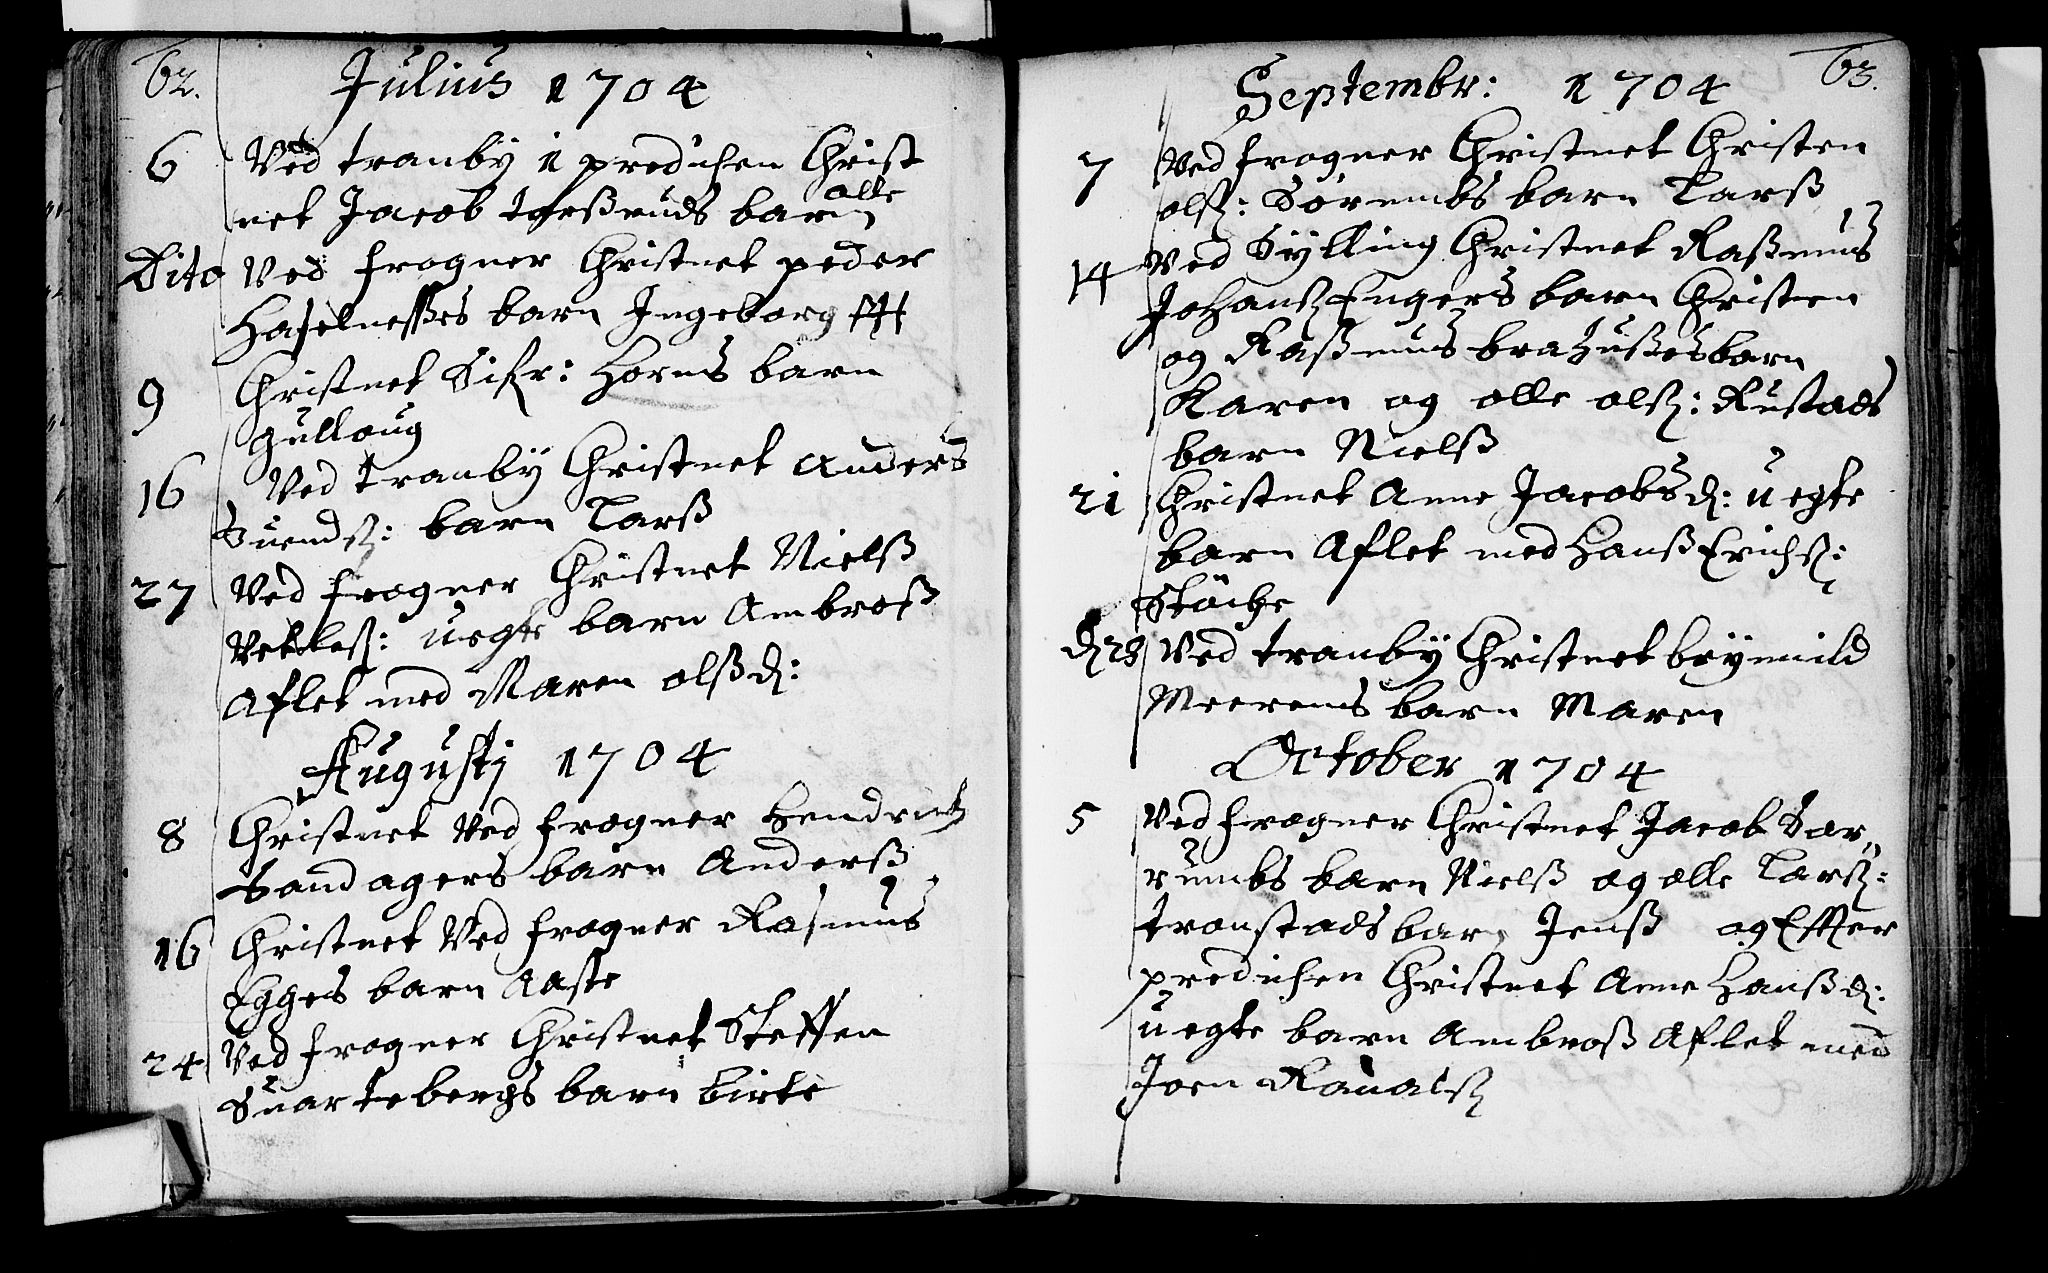 62.
Julius 1704
6 Ved tranby 1 predichen Christ
net Jacob torßruds barn olle
Dito Ved frogner Christnet peder
Haselneßes barn Ingeborg
9 Christnet Sifr: Horns barn
gulloug
16 Ved tranby Christnet Anders
Suendß: barn Larß
27 Ved frogner Christnet Nielß
Vetleß: uegte barn Ambroß
Aflet med Maren olßd:
Augustj 1704
8 Christnet Ved frogner Hendrich
Sandagers barn Anderß
16 Christnet Ved frogner Rasmus
Egges barn Aaste
24 Ved frogner Christnet Steffen
Suartebergs barn birte
63.
Septembr: 1704
7 Ved frogner Christnet Christen
olß: Sørumbs barn Larß
14 Ved Sylling Christnet Raßmus
Johanß Engers barn Christen
og Raßmus brahußes barn
Karen og olle olß: Rustads
barn Nielß
21 Christnet Anne Jacobsd: uegte
barn Aflet med Hanß Erichß:
Støche
d 28 Ved tranby Christnet brynild
Meerens barn Maren
October 1704
5 Ved frogner Christnet Jacob Sør„
rumbs barn Nielß og olle Larß:
tronstads barn Jenß og Effter
predichen Christnet Anne Hanßd:
uegte barn Ambroß Aflet med
Joen Raualß